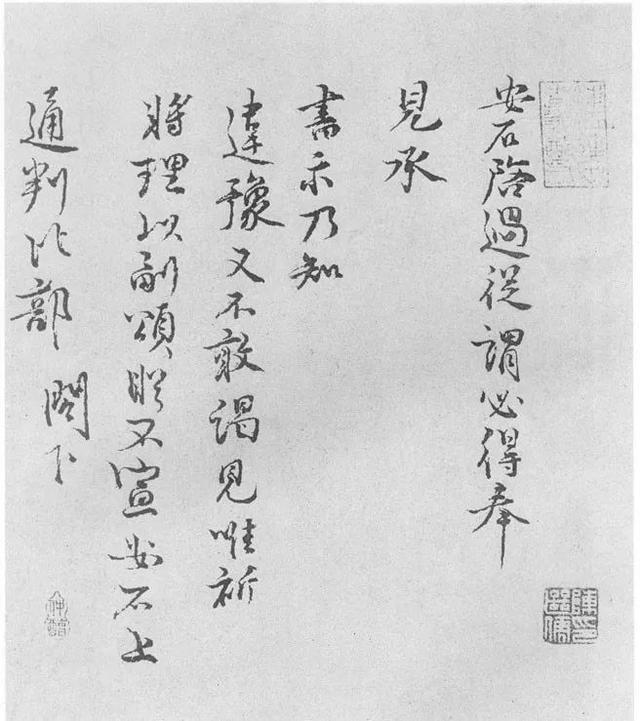 安石啓過從謂必得奉
見承
書示乃知
違豫又不敢謁見唯祈
將理以副頌咏不宣安石上
通判比部閤下